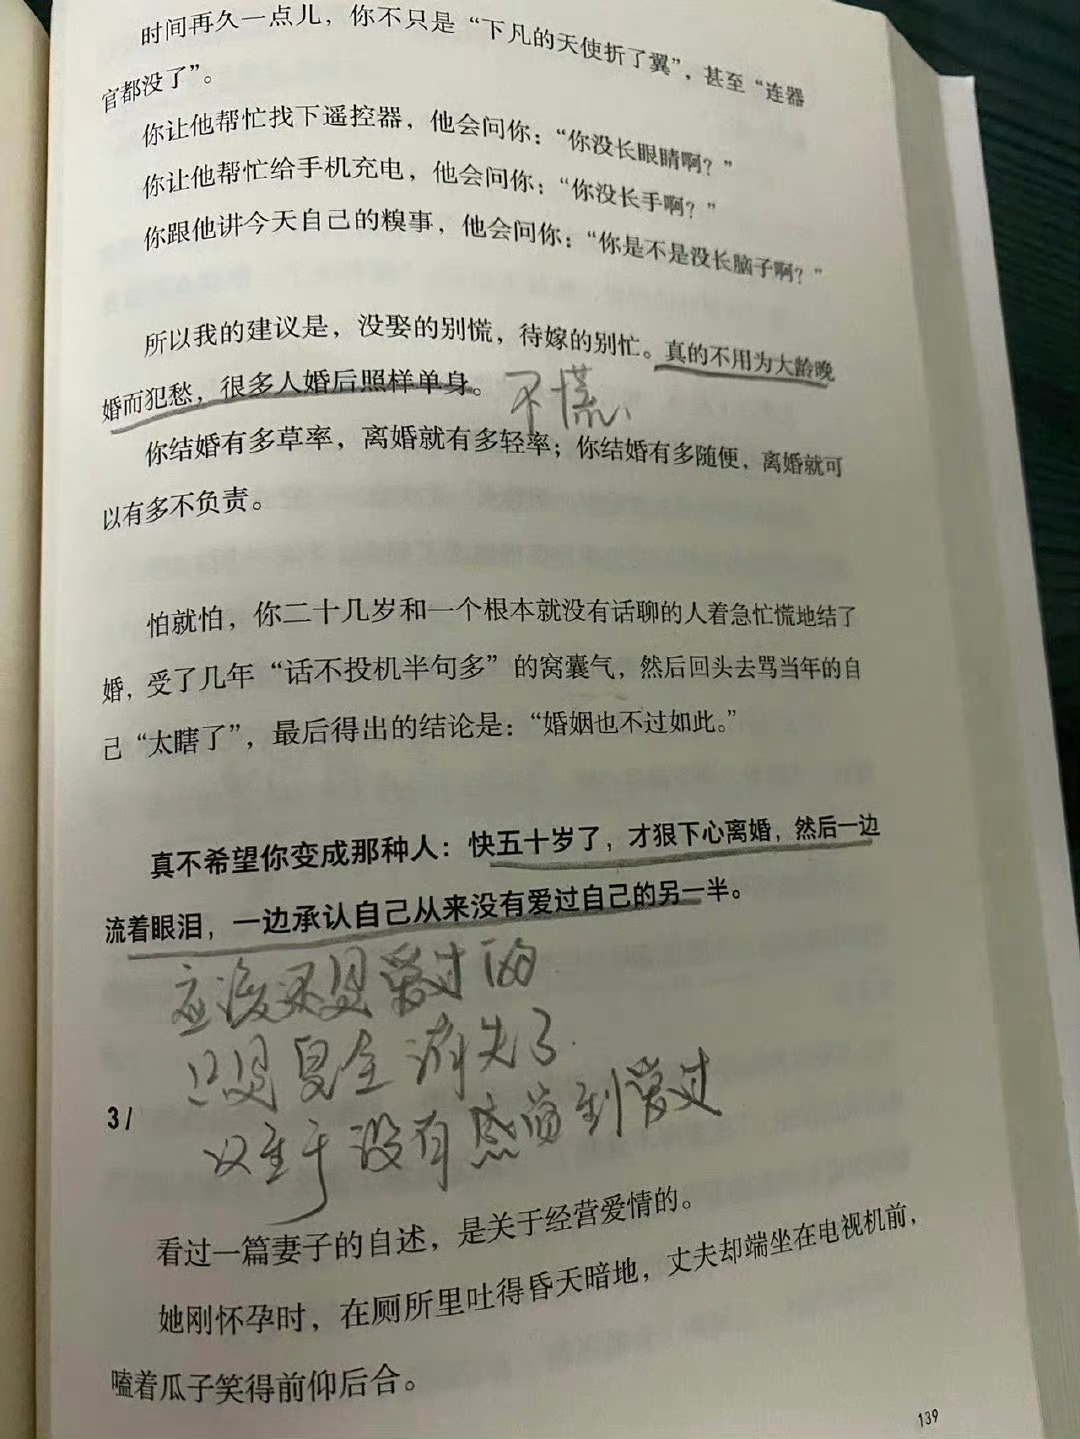 时间再久一点儿，你不只是“下凡的天使折了翼”，甚至“连器
官都没了”。
你让他帮忙找下遥控器，他会问你：“你没长眼睛啊？”
你让他帮忙给手机充电，他会问你：“你没长手啊？”
你跟他讲今天自己的糗事，他会问你：“你是不是没长脑子啊？”
所以我的建议是，没娶的别慌，待嫁的别忙。真的不用为大龄晚
婚而犯愁，很多人婚后照样单身。
不慌、
你结婚有多草率，离婚就有多轻率；你结婚有多随便，离婚就可
以有多不负责。
怕就怕，你二十几岁和一个根本就没有话聊的人着急忙慌地结了
婚，受了几年“话不投机半句多”的窝囊气，然后回头去骂当年的自
己“太瞎了”，最后得出的结论是：“婚姻也不过如此。”
真不希望你变成那种人：快五十岁了，才狠下心离婚，然后一边
流着眼泪，一边承认自己从来没有爱过自己的另一半。
应该还是爱过的
只是完全消失了
以至于没有感觉到爱过
3 /
看过一篇妻子的自述，是关于经营爱情的。
她刚怀孕时，在厕所里吐得昏天暗地，丈夫却端坐在电视机前，
嗑着瓜子笑得前仰后合。
139